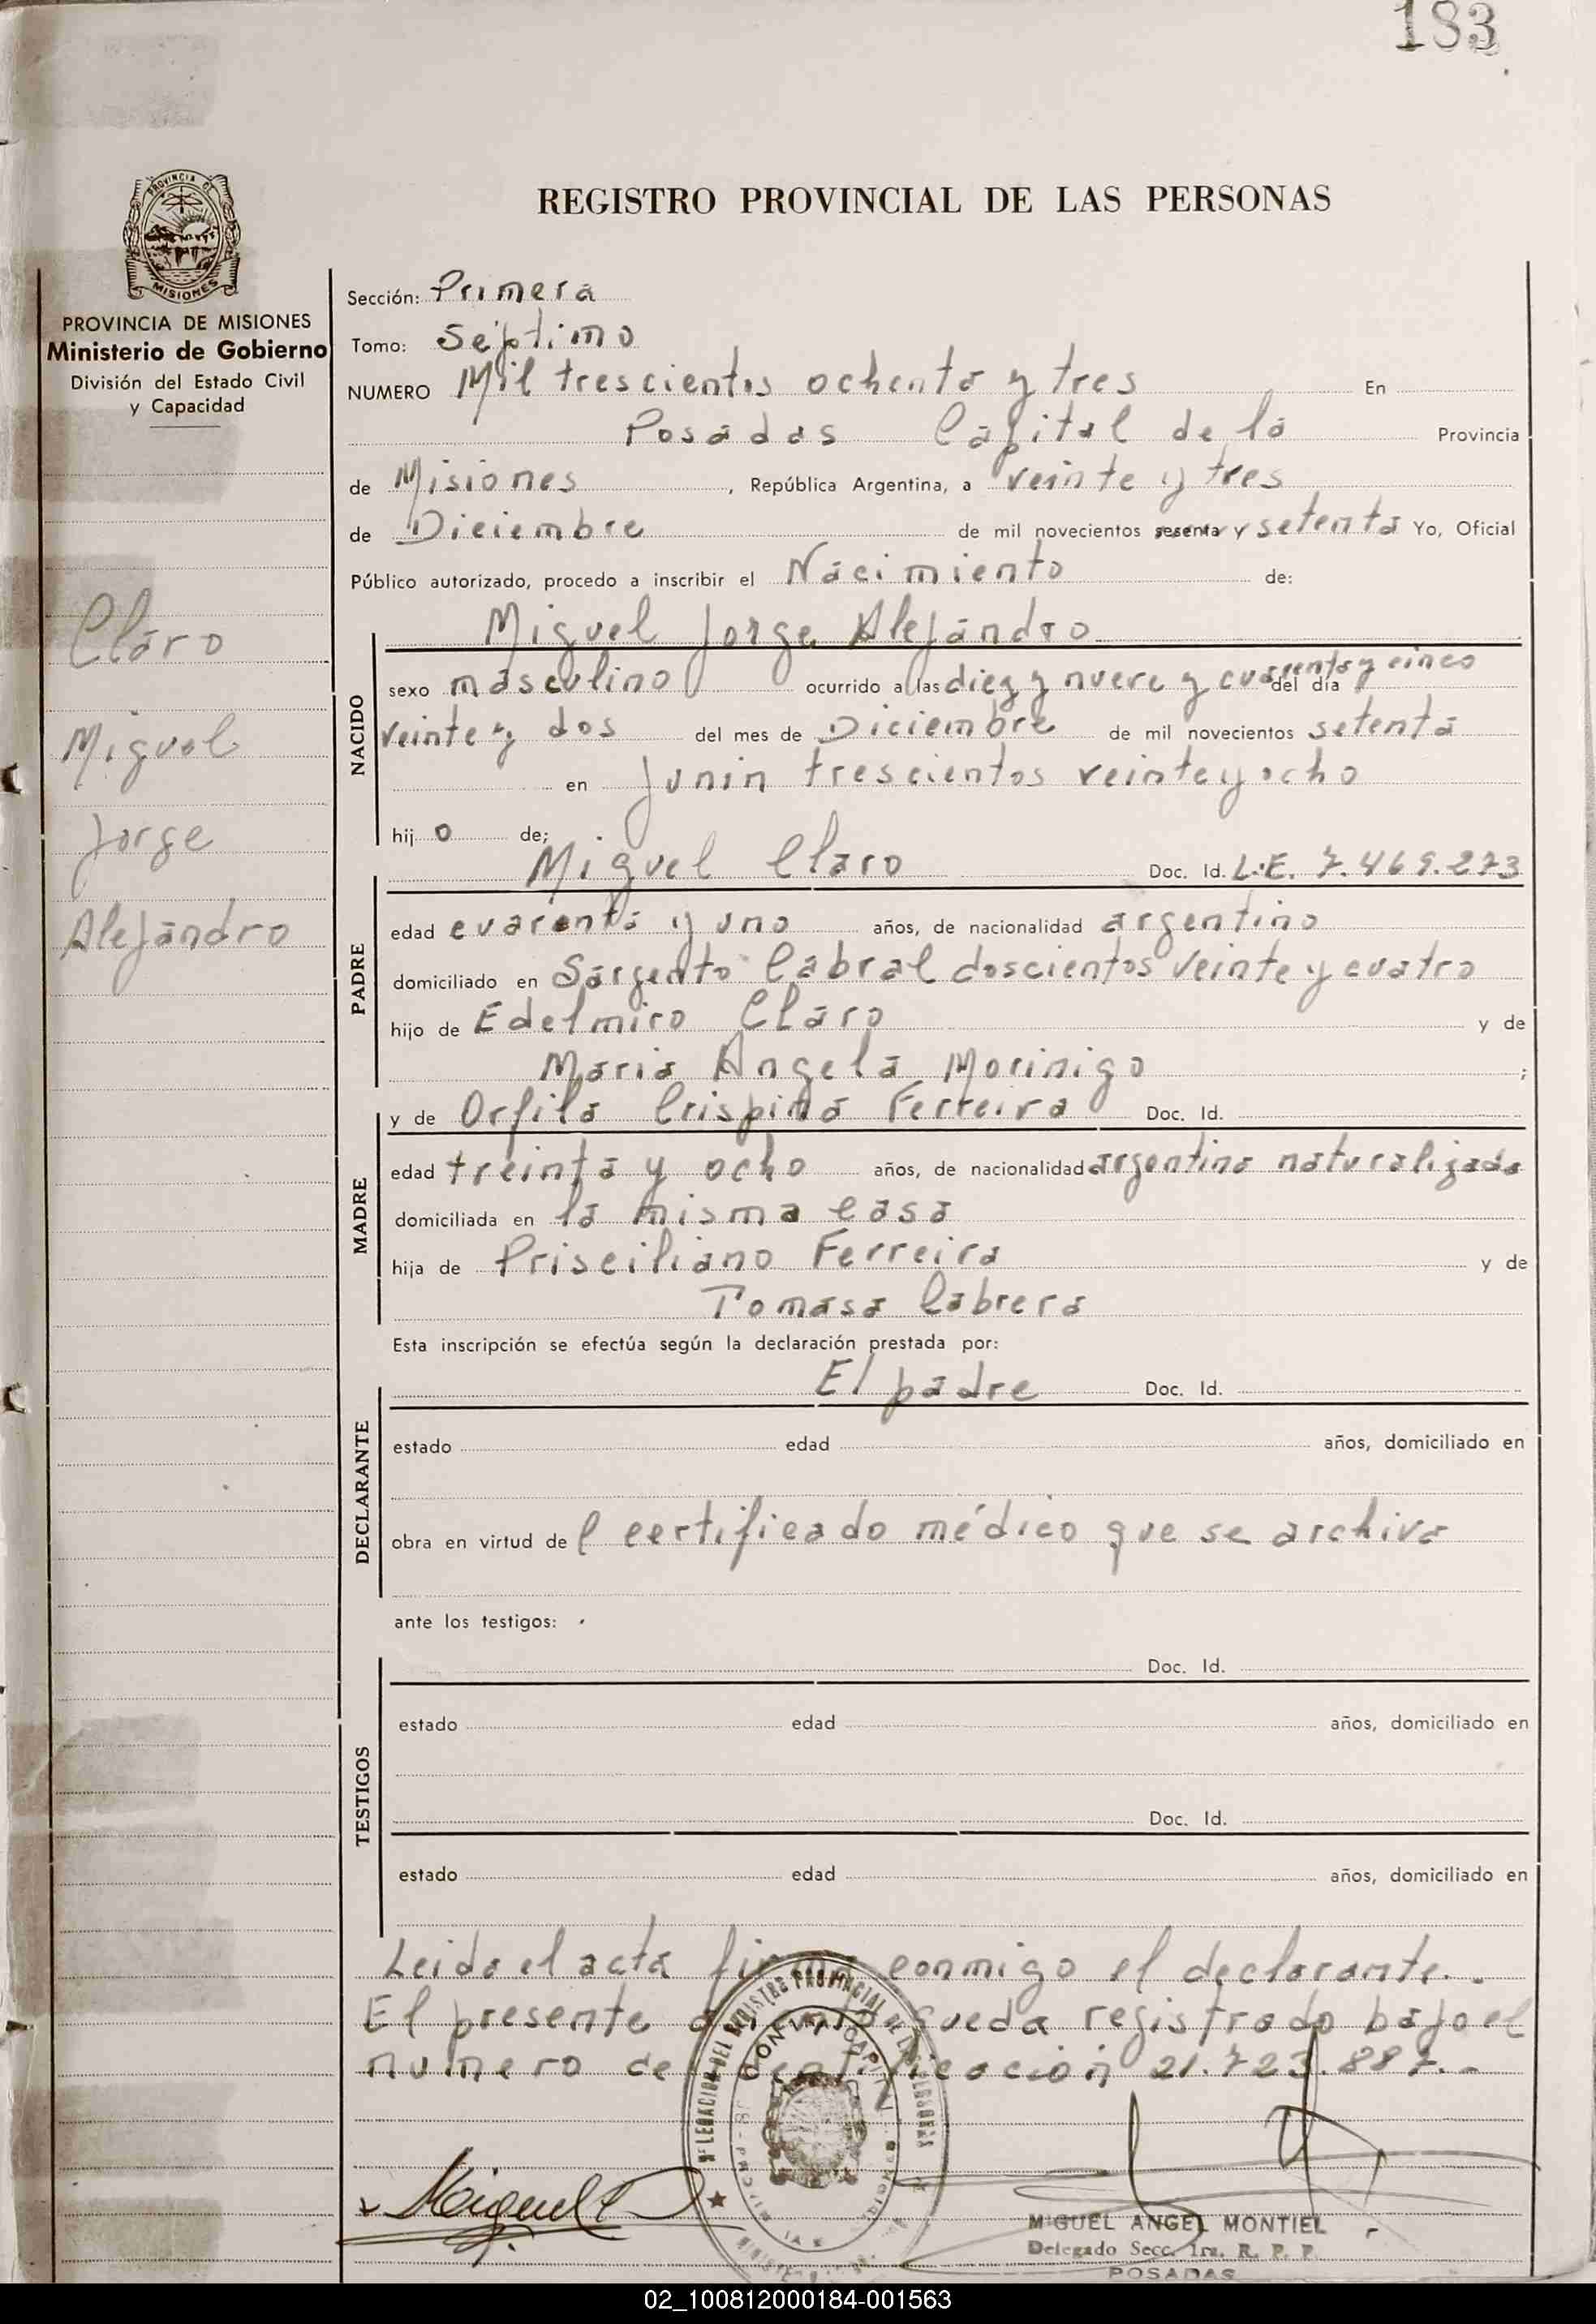 183
REGISTRO PROVINCIAL DE LAS PERSONAS
PROVINCIA DE
MISIONES
PROVINCIA DE MISIONES
Ministerio de Gobierno
División del Estado Civil
y Capacidad
Claro
Miguel
Jorge
Alejandro
Sección: Primera
Tomo: Séptimo
NUMERO Mil trescientos ochenta y tres En
Posadas Capital de la Provincia
de Misiones, República Argentina, a veinte y tres
de Diciembre de mil novecientos sesenta y setenta Yo, Oficial
Público autorizado, procedo a inscribir el Nacimiento de:
Miguel Jorge Alejandro
NACIDO
sexo masculino ocurrido a las diez y nueve y cuarenta y cinco del día
veinte y dos del mes de Diciembre de mil novecientos setenta
en Junin trescientos veinte y ocho
hijo de;
Miguel Claro Doc. Id. L.E. 7.469.273
PADRE
edad cuarenta y uno años, de nacionalidad argentino
domiciliado en Sargento Cabral doscientos veinte y cuatro
hijo de Edelmiro Claro y de
Maria Angela Morinigo ;
y de Orfila Crispina Ferreira Doc. Id.
MADRE
edad treinta y ocho años, de nacionalidad argentina naturalizada
domiciliada en la misma casa
hija de Prisciliano Ferreira y de
Tomasa Cabrera
Esta inscripción se efectúa según la declaración prestada por:
El padre Doc. Id.
DECLARANTE
estado edad años, domiciliado en
obra en virtud del certificado médico que se archiva
ante los testigos:
Doc. Id.
TESTIGOS
estado edad años, domiciliado en
Doc. Id.
estado edad años, domiciliado en
Leida el acta firma conmigo el declarante.-
El presente queda registrado bajo el
numero de identificación 21.723.887.-
Miguel
MIGUEL ANGEL MONTIEL
Delegado Secc. 1ra. R. P. P.
POSADAS
02_100812000184-001563